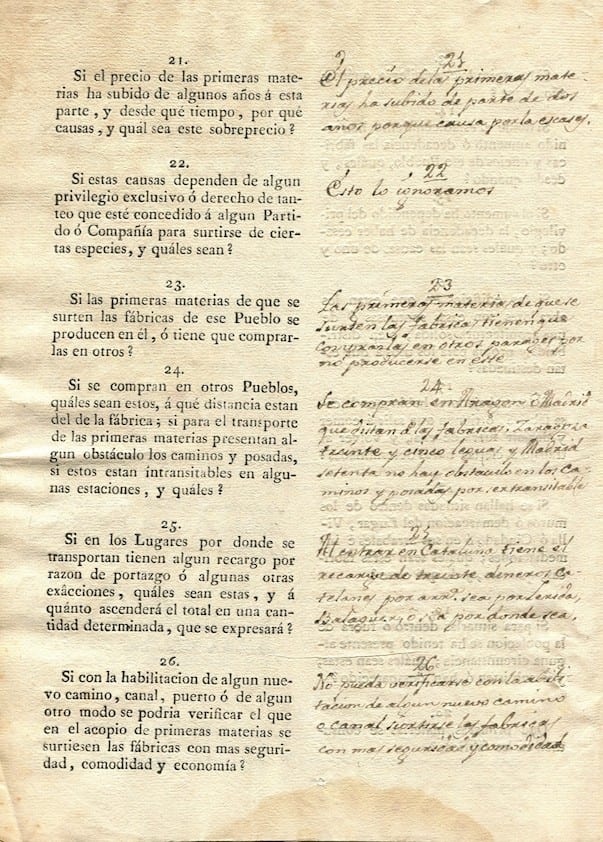 21.
Si el precio de las primeras mate-
rias ha subido de algunos años á esta
parte, y desde qué tiempo, por qué
causas, y quál sea este sobreprecio?
22.
Si estas causas dependen de algun
privilegio exclusivo ó derecho de tan-
teo que esté concedido á algun Parti-
do ó Compañía para surtirse de cier-
tas especies, y quáles sean?
23.
Si las primeras materias de que se
surten las fábricas de ese Pueblo se
producen en él, ó tiene que comprar-
las en otros?
24.
Si se compran en otros Pueblos,
quáles sean estos, á qué distancia estan
del de la fábrica; si para el transporte
de las primeras materias presentan al-
gun obstáculo los caminos y posadas,
si estos estan intransitables en algu-
nas estaciones, y quáles?
25.
Si en los Lugares por donde se
transportan tienen algun recargo por
razon de portazgo ó algunas otras
exâcciones, quáles sean estas, y á
quánto ascenderá el total en una can-
tidad determinada, que se expresará?
26.
Si con la habilitacion de algun nue-
vo camino, canal, puerto ó de algun
otro modo se podria verificar el que
en el acopio de primeras materias se
surtiesen las fábricas con mas seguri-
dad, comodidad y economía?
21
El precio de las primeras mate-
rias ha subido de parte de dos
años porque causa por la escases.
22
Esto lo ignoramos
23
Las primeras materias de que se
surten las fabricas tienen que
comprarlas en otros parages por
no producirse en este
24
Se compran en Aragon o Madrid
que distan a las fabricas. Zaragoza
treinta y cinco leguas y Madrid
setenta no hay obstaculo en los ca-
minos y posadas por ser transitable
25
Al entrar en Cataluña tiene el
recargo de treinta dineros Ca-
telanes por arr.ª sea por Lerida,
Balaguer, o sea por donde sea.
26
No puda verificarse con la avili-
tacion de algun nuevo camino
o canal surtirse las fabricas
con mas seguridad y comodidad